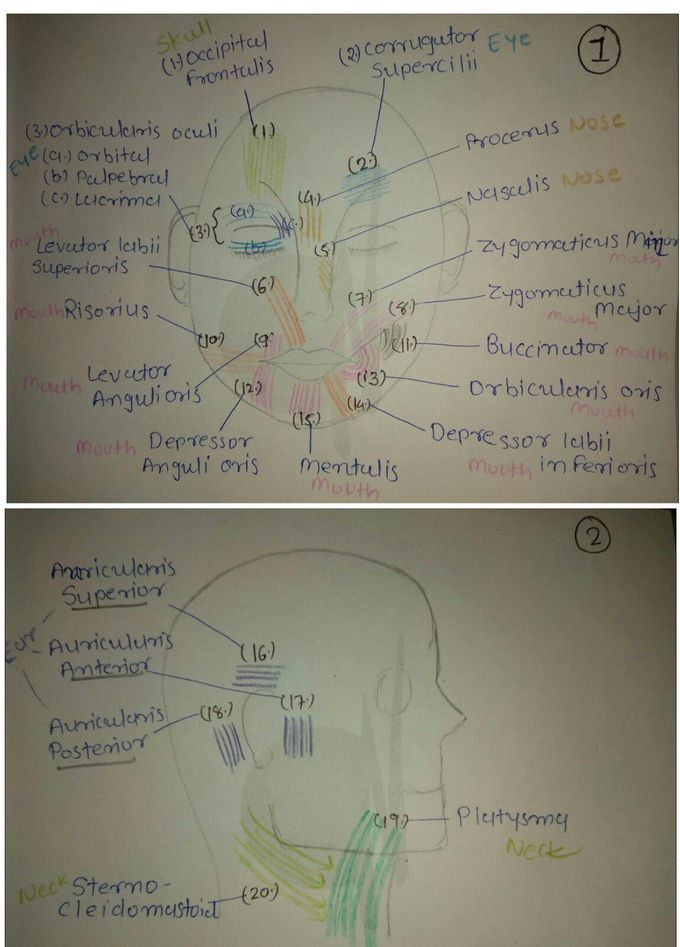 Skull
(1.) Occipital
frontalis
(2.) Corrugator
Supercilii
Eye
1
(3.) Orbicularis oculi
Eye (a.) Orbital
(b.) Palpebral
(c.) Lacrimal
(1.)
(2.)
Procerus Nose
(4.)
Nasalis Nose
(3.)
(a.)
(c.)
(b.)
(5.)
Mouth
Levator labii
Superioris
(6.)
(7.)
Zygomaticus Minor
Mouth
(8.)
Zygomaticus
Mouth Major
Mouth Risorius
(10.)
(9.)
(11.)
Buccinator Mouth
Mouth Levator
Anguli oris
(12.)
(13.)
Orbicularis oris
Mouth
(15.)
(14.)
Mouth Depressor
Anguli oris
Mentalis
Mouth
Depressor labii
Mouth inferioris
2
Auricularis
Superior
(16.)
Ear
Auricularis
Anterior
(17.)
Auricularis
Posterior
(18.)
(19.)
Platysma
Neck
Neck Sterno-
Cleidomastoid
(20.)